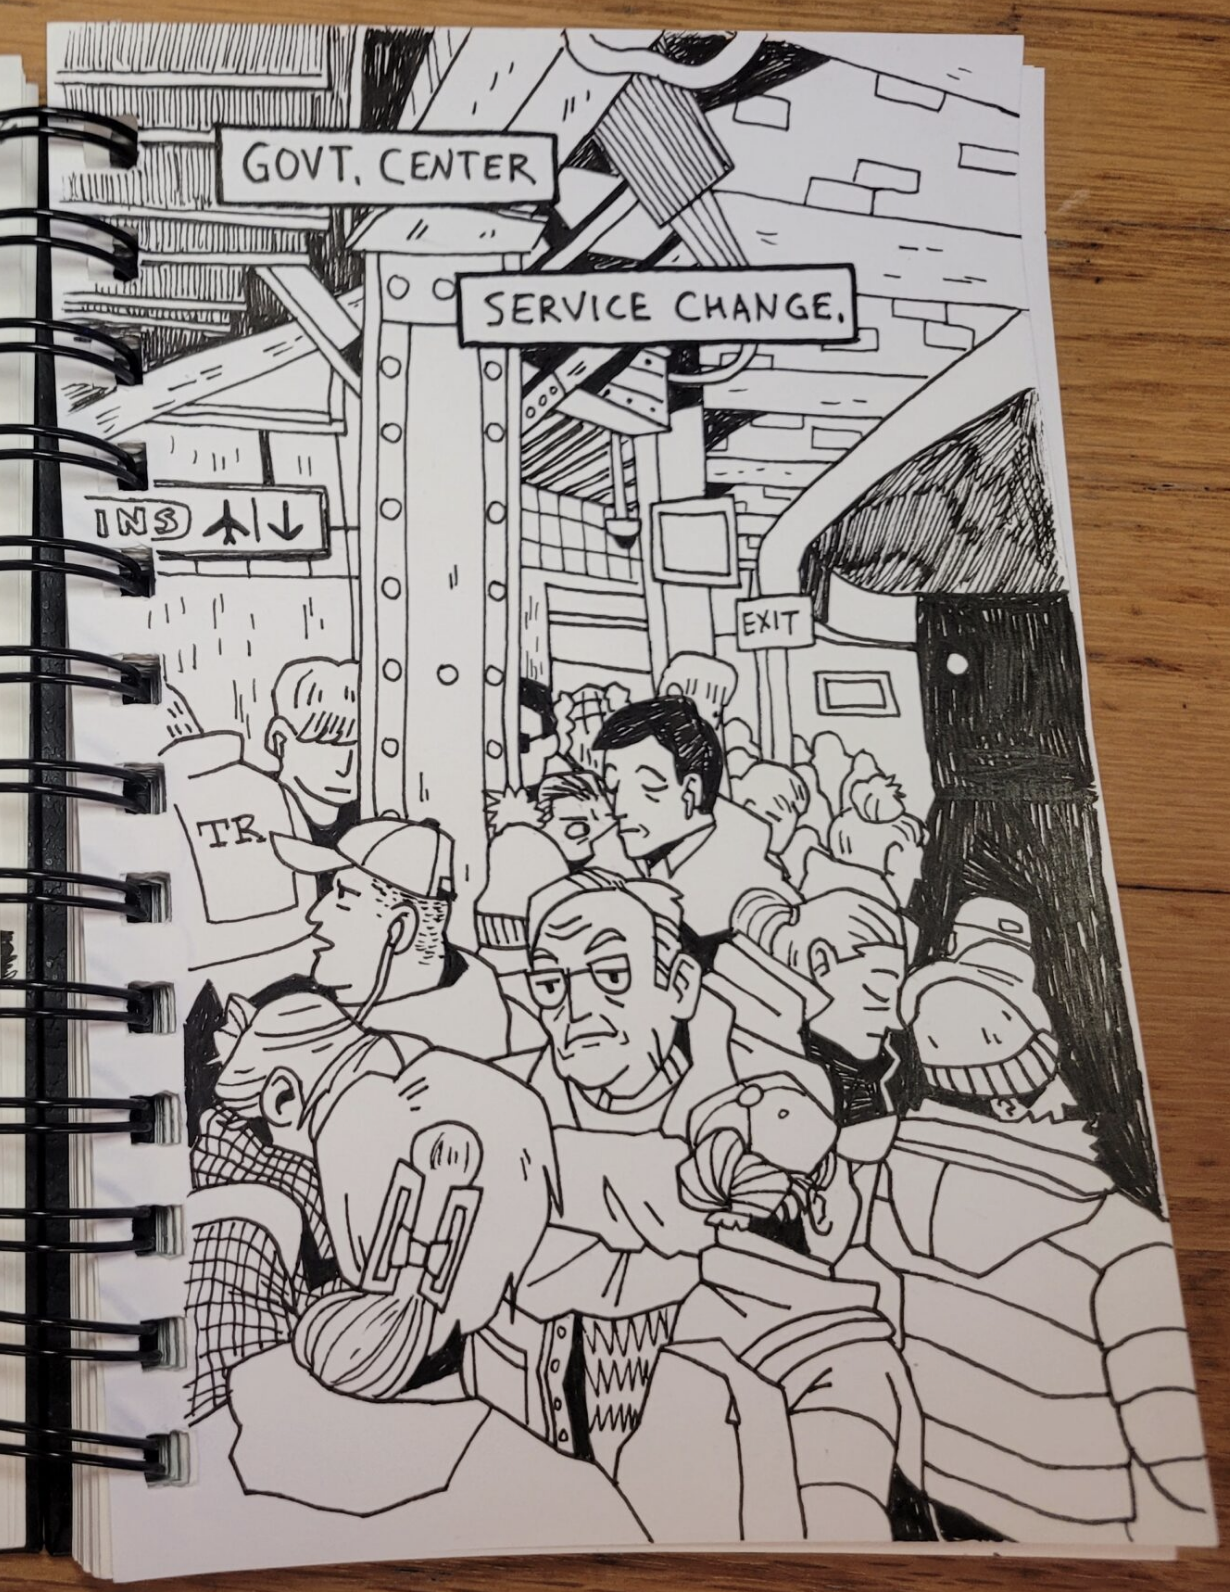 GOVT. CENTER
SERVICE CHANGE.
INS
EXIT
TR